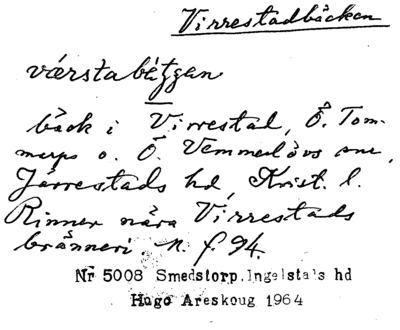 Virrestadbäcken
värstabätzan
bäck i Virrestad, Ö. Tom-
merps o. Ö. Vemmerlövs snr,
Järrestads hd, Krist. l.
Rinner nära Virrestads
bränneri. n. f. 94.
Nr 5008 Smedstorp, Ingelstads hd
Hugo Areskoug 1964